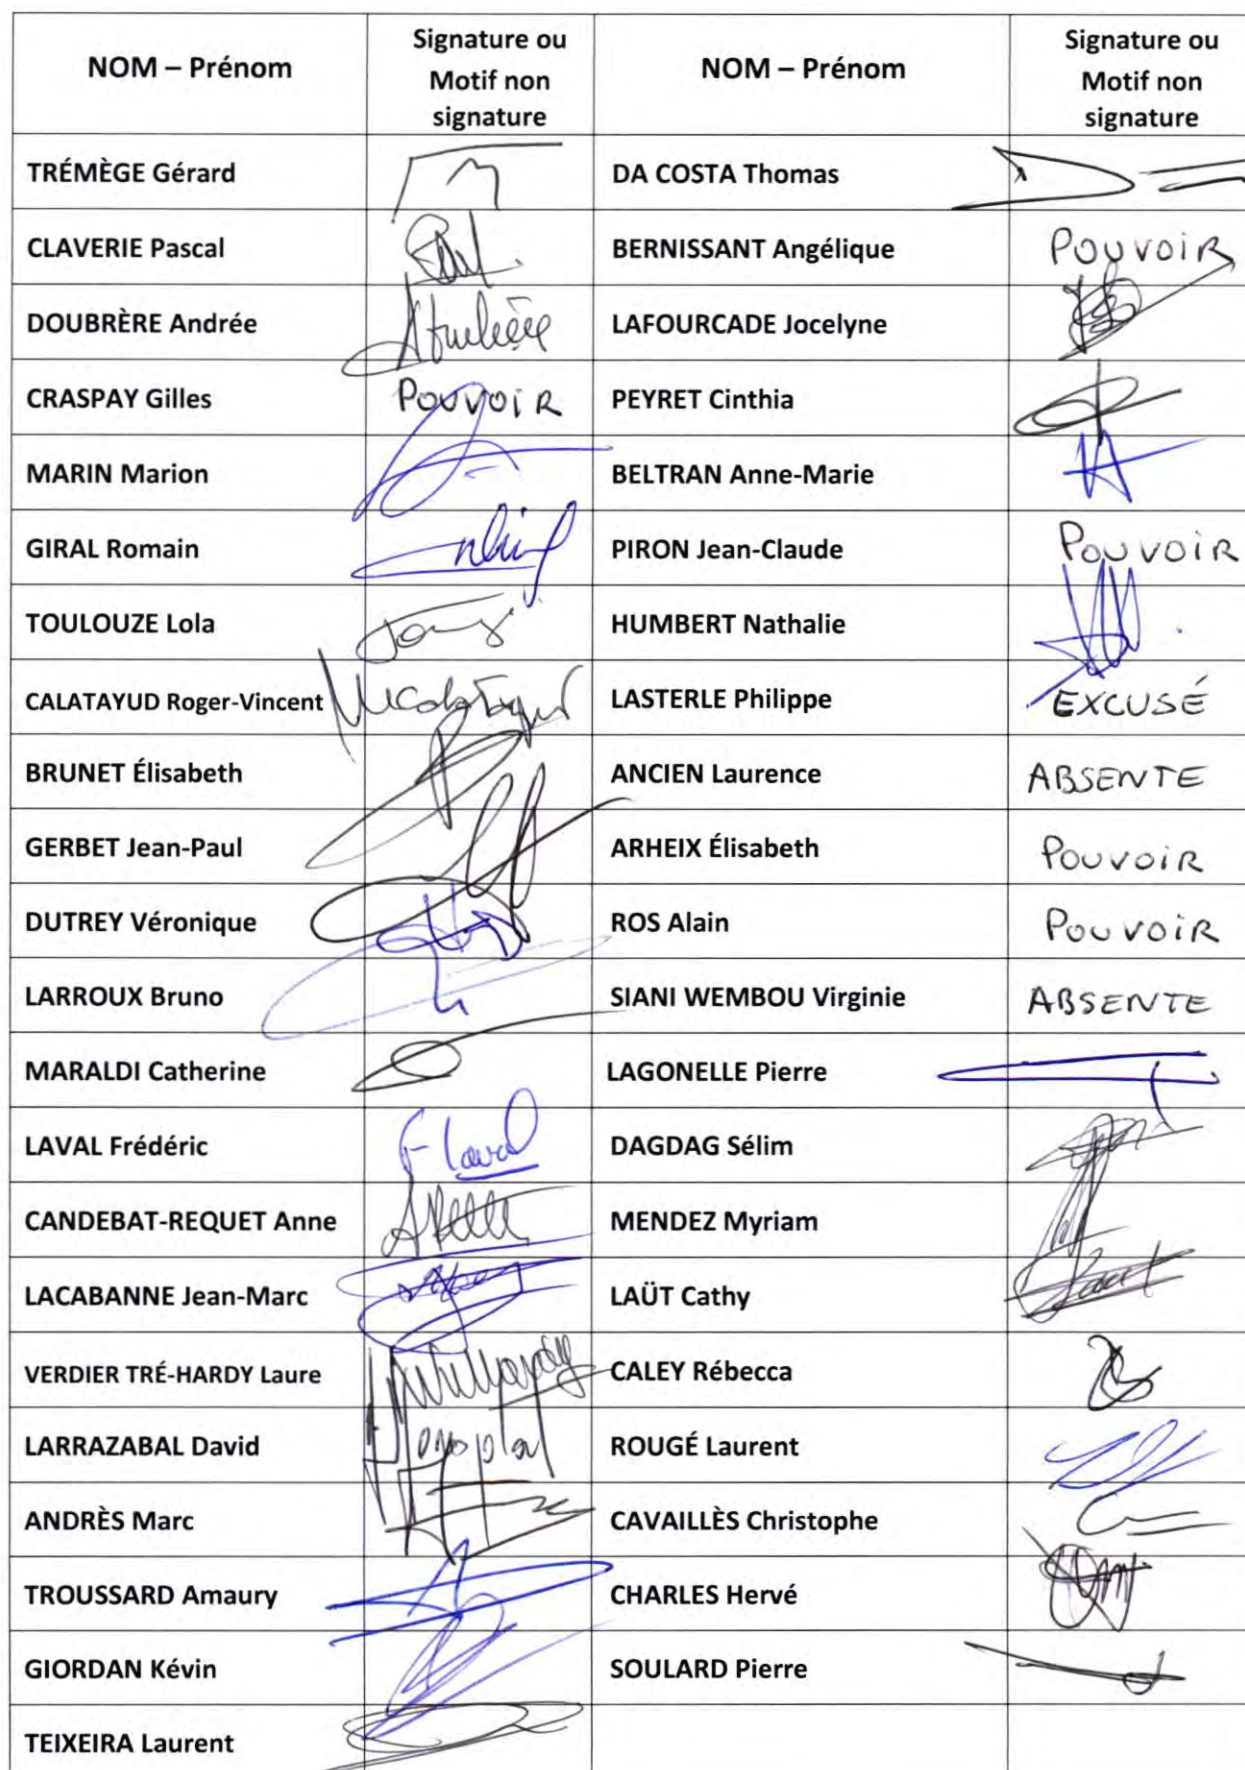 NOM – Prénom | Signature ou Motif non signature | NOM – Prénom | Signature ou Motif non signature
TRÉMÈGE Gérard | | DA COSTA Thomas |
CLAVERIE Pascal | | BERNISSANT Angélique | POUVOIR
DOUBRÈRE Andrée | | LAFOURCADE Jocelyne |
CRASPAY Gilles | POUVOIR | PEYRET Cinthia |
MARIN Marion | | BELTRAN Anne-Marie |
GIRAL Romain | | PIRON Jean-Claude | POUVOIR
TOULOUZE Lola | | HUMBERT Nathalie |
CALATAYUD Roger-Vincent | | LASTERLE Philippe | EXCUSÉ
BRUNET Élisabeth | | ANCIEN Laurence | ABSENTE
GERBET Jean-Paul | | ARHEIX Élisabeth | POUVOIR
DUTREY Véronique | | ROS Alain | POUVOIR
LARROUX Bruno | | SIANI WEMBOU Virginie | ABSENTE
MARALDI Catherine | | LAGONELLE Pierre |
LAVAL Frédéric | F Laval | DAGDAG Sélim |
CANDEBAT-REQUET Anne | | MENDEZ Myriam |
LACABANNE Jean-Marc | | LAÜT Cathy |
VERDIER TRÉ-HARDY Laure | | CALEY Rébecca |
LARRAZABAL David | | ROUGÉ Laurent |
ANDRÈS Marc | | CAVAILLÈS Christophe |
TROUSSARD Amaury | | CHARLES Hervé |
GIORDAN Kévin | | SOULARD Pierre |
TEIXEIRA Laurent | | |